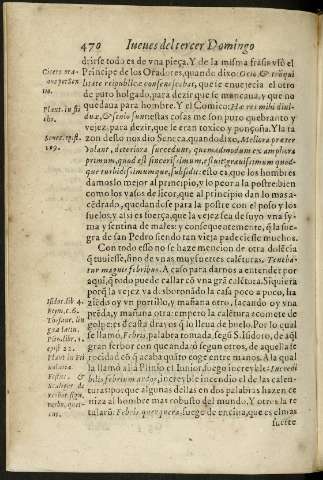 470 Iueues del tercer Domingo
dezirse todo es de vna pieça. Y de la misma frasis vsò el
Principe de los Oradores, quando dixo: Ocio, & tráquil
litate reipublicæ consenescebat, que se enuejecia el otro
de puro holgado, para dezir que se mancaua, y que no
quedaua para hombre. Y el Comico: Hæ res mihi diui-
duæ, & senio sunt estas cosas me son puro quebranto y
vejez, para dezir, que le eran toxico y ponçoña. Y la ra
zon desto nos dio Seneca, quando dixo, Meliora præter
volant, deteriora succedunt, quemadmodum ex amphora
primum, quod est sincerissimum, effluit, grauissimum quod-
que turbidissimumque, subsidit: ello es a, que los hombres
damos lo mejor al principio, y lo peor a la postre: bien
como los vasos de licor, que al principio dan lo mas a-
cēdrado, quedandose para la postre con el poso y los
suelos, y assi es fuerça, que la vejez sea de suyo vna sy-
ma y sentina de males: y consequentemente, q̄ la sue-
gra de san Pedro siendo tan vieja padeciesse muchos.
Con todo esso no se haze mencion de otra dolēcia
q̄ tuuiesse, sino de vnas muy fuertes calēturas. Teneba-
tur magnis febribus. A caso para darnos a entender por
aqui, q̄ todo puede callar cō vna grā calētura. Siquiera
porq̄ la vejez va desboronādo la casa poco a poco, ha
ziēdo oy vn portillo, y mañana otro, sacando oy vna
prēda, y mañana otra: empero la calētura acomete de
golpe, es deçasta dravos q̄ lo lleua de buelo. Por lo qual
se llamò, Febris, palabra tomada segū S. Isidoro, de aq̄l
gran feruor con que anda: o segun otros, de aquella fe
rocidad cō q̄ acaba quito coge entre manos. A la qual
la llamò alla Plinio el Iunior, fuego increyble: Incredi
bilis febrium ardor, increyble incendio el de las calen-
turas: porque algunas dellas en dos palabras hazen ce
niza al hombre mas robusto del mundo. Y otros la re
tularō: Febris querquera, fuego de enzina, que es el mas
fuerte
Plaut. in sti
cho.
Senec. ep. st.
Isidor. lib. 4.